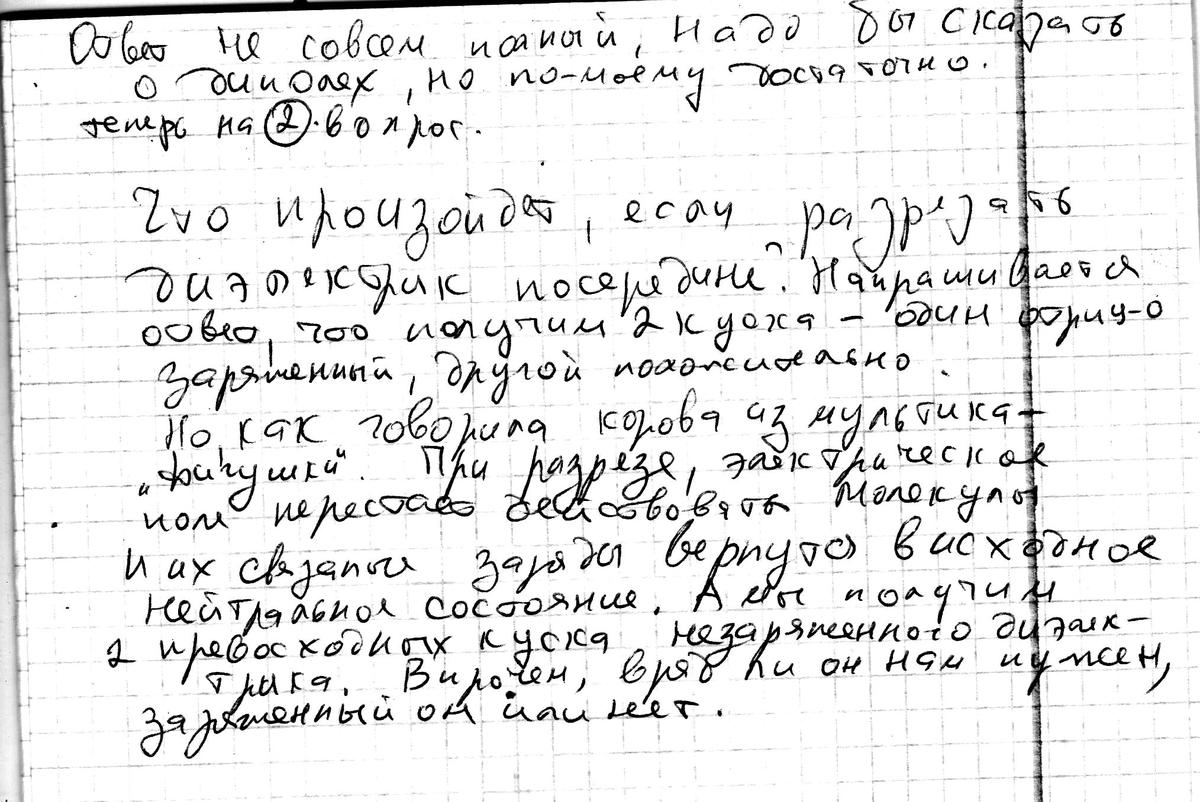 Ответ не совсем полный, надо бы сказать
о диполях, но по-моему достаточно.
теперь на ② вопрос.
Что произойдет, если разрезать
диэлектрик посередине? Напрашивается
ответ, что получим 2 куска – один отриц-о
заряженный, другой положительно.
Но, как говорила корова из мультика –
"фигушки". При разрезе, электрическое
поле перестает действовать Молекулы
и их связаные заряды вернутся в исходное
нейтральное состояние. А мы получим
2 превосходных куска незаряженного диэлек-
трика. Впрочем, вряд ли он нам нужен,
заряженный он или нет.